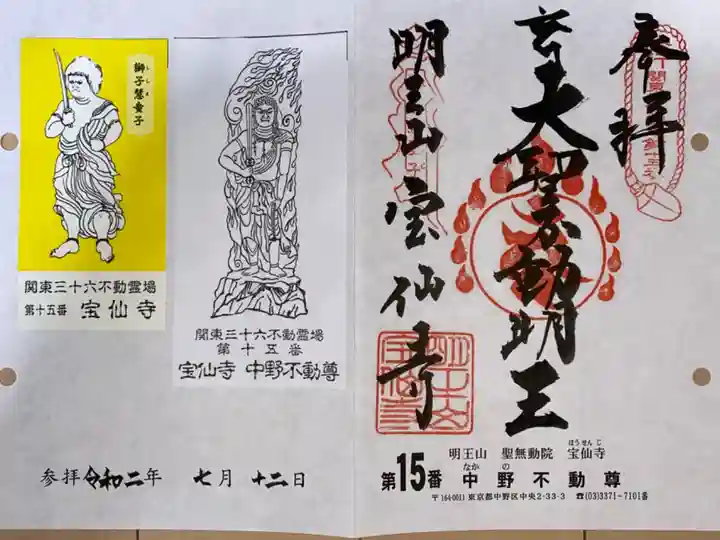 奉拝
大聖不動明王
明王山 宝仙寺
ほうせんじ
明王山 聖無動院 宝仙寺
なか の
第15番 中野不動尊
〒164-0011 東京都中野区中央2-33-3 ☎(03)3371-7101番
獅子慧童子
関東三十六不動霊場
第十五番 宝仙寺
関東三十六不動霊場
第十五番
宝仙寺 中野不動尊
参拝 令和二年 七月 十二日